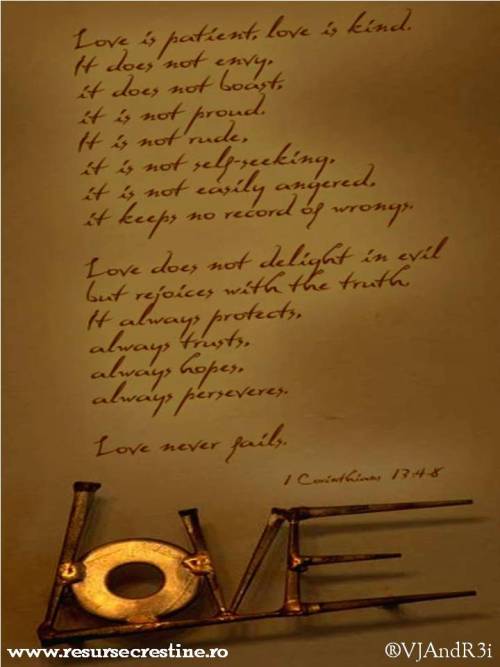 Love is patient, love is kind.
It does not envy,
it does not boast,
it is not proud.
It is not rude,
it is not self-seeking,
it is not easily angered,
it keeps no record of wrongs.
Love does not delight in evil
but rejoices with the truth.
It always protects,
always trusts,
always hopes,
always perseveres.
Love never fails.
1 Corinthians 13:4-8
LOVE
www.resursecrestine.ro
®VJAndR3i